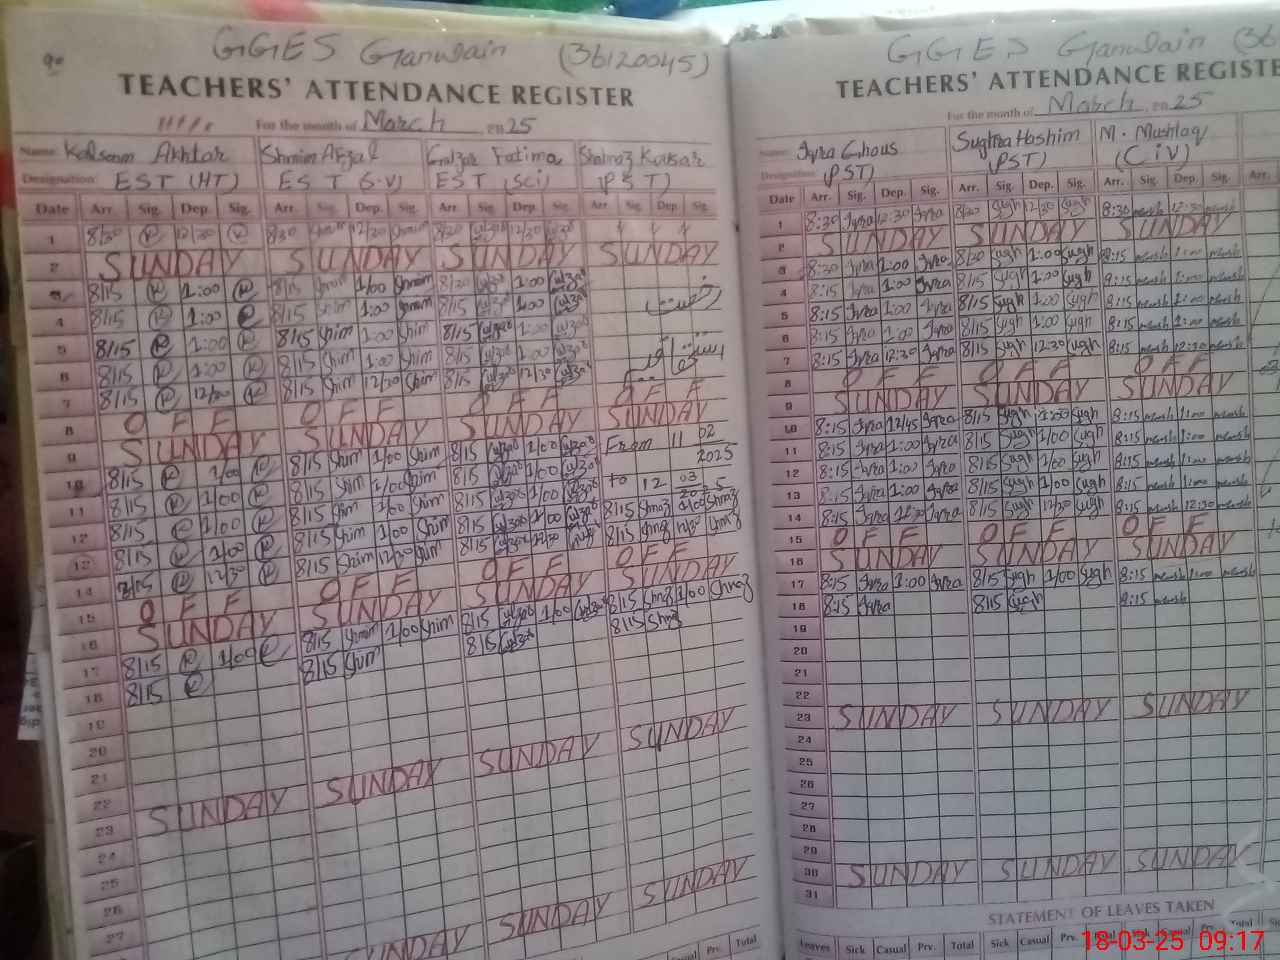 90
GGES Ganusain (36120045)
TEACHERS' ATTENDANCE REGISTER
For the month of March 2025
Name Kalsoom Akhtar Shmim Afzal Gulzar Fatima Shahnaz Kausar
Designation EST (HT) EST (S.V) EST (Sci) (PST)
Date Arr. Sig. Dep. Sig. Arr. Sig. Dep. Sig. Arr. Sig. Dep. Sig. Arr. Sig. Dep. Sig.
1 8/30 12/30 8/30 Shmim 12/30 Shmim 8/30 12/30
2 SUNDAY SUNDAY SUNDAY SUNDAY
3 8/15 1:00 8/15 Shmim 1/00 Shmim 8/20 1:00
4 8/15 1:00 8/15 Shmim 1:00 Shmim 8/15 1:00 رخصت
5 8/15 1:00 8/15 Shim 1:00 Shim 8/15 1:00
6 8/15 1:00 8/15 Shim 1:00 Shim 8/15 1:00
7 8/15 12/30 8/15 Shim 12/30 Shim 8/15 12/30
8 OFF OFF OFF OFF
9 SUNDAY SUNDAY SUNDAY SUNDAY
10 8/15 1/00 8/15 Shim 1/00 Shim 8/15 1/00 From 11 02 2025
11 8/15 1/00 8/15 Shim 1/00 Shim 8/15 1/00 to 12 03 2025
12 8/15 1/00 8/15 Shim 1/00 Shim 8/15 1/00
13 8/15 1/00 8/15 Shim 1/00 Shim 8/15 1/00 8/15 Shnaz 1/00 Shnaz
14 8/15 12/30 8/15 Shim 12/30 Shim 8/15 12/30 8/15 Shnaz 12/30 Shnaz
15 OFF OFF OFF OFF
16 SUNDAY SUNDAY SUNDAY SUNDAY
17 8/15 1/00 8/15 Shmim 1/00 Shim 8/15 1/00 8/15 Shnaz 1/00 Shnaz
18 8/15 8/15 Shim 8/15 8/15 Shnaz
19
20
21
22
23 SUNDAY SUNDAY SUNDAY SUNDAY
24
25
26
27
SUNDAY SUNDAY SUNDAY
Prv. Total
GGES Ganusain (36
TEACHERS' ATTENDANCE REGISTE
For the month of March 2025
Name: Iqra Ghous Sughra Hashim M. Mushtaq
Designation (PST) (PST) (C.iV)
Date Arr. Sig. Dep. Sig. Arr. Sig. Dep. Sig. Arr. Sig. Dep. Sig. Arr.
1 8:30 Iqra 12:30 Iqra 8/30 Sugh 12/30 Sugh 8:30 mush 12:30 mush
2 SUNDAY SUNDAY SUNDAY
3 8:20 Iqra 1:00 Iqra 8/20 Sugh 1:00 Sugh 8:15 mush 1:00 mush
4 8:15 Iqra 1:00 Iqra 8/15 Sugh 1:00 Sugh 8:15 mush 1:00 mush
5 8:15 Iqra 1:00 Iqra 8/15 Sugh 1:00 Sugh 8:15 mush 1:00 mush
6 8:15 Iqra 1:00 Iqra 8/15 Sugh 1:00 Sugh 8:15 mush 1:00 mush
7 8:15 Iqra 12:30 Iqra 8/15 Sugh 12:30 Sugh 8:15 mush 12:30 mush
8 OFF OFF OFF
9 SUNDAY SUNDAY SUNDAY
10 8:15 Iqra 12/45 Iqra 8/15 Sugh 1:00 Sugh 8:15 mush 1:00 mush
11 8:15 Iqra 1:00 Iqra 8/15 Sugh 1/00 Sugh 8:15 mush 1:00 mush
12 8:15 Iqra 1:00 Iqra 8/15 Sugh 1/00 Sugh 8:15 mush 1:00 mush
13 8:15 Iqra 1:00 Iqra 8/15 Sugh 1/00 Sugh 8:15 mush 1:00 mush
14 8:15 Iqra 12:30 Iqra 8/15 Sugh 12/30 Sugh 8:15 mush 12:30 mush
15 OFF OFF OFF
16 SUNDAY SUNDAY SUNDAY
17 8:15 Iqra 1:00 Iqra 8/15 Sugh 1/00 Sugh 8:15 mush 1:00 mush
18 8:15 Iqra 8/15 Sugh 8:15 mush
19
20
21
22
23 SUNDAY SUNDAY SUNDAY
24
25
26
27
28
29
30 SUNDAY SUNDAY SUNDAY
31
STATEMENT OF LEAVES TAKEN
Leaves Sick Casual Prv. Total Sick Casual Prv. Total Sick Casual Prv. Total
18-03-25 09:17